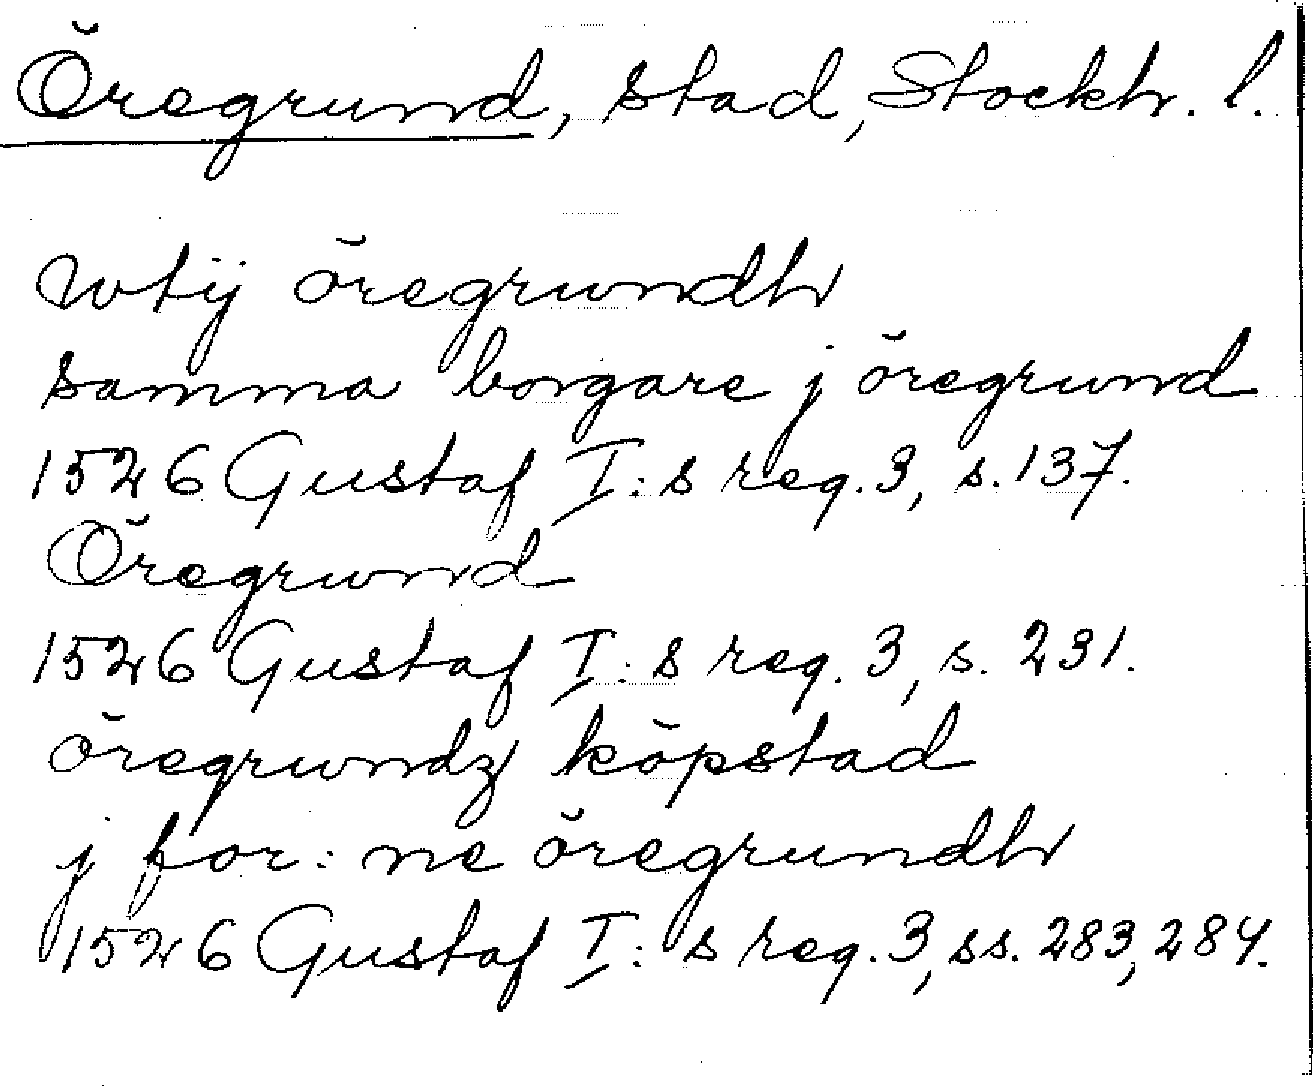 Öregrund, stad, Stockh. l.
wtij öregrundh
samma borgare j öregrund
1526 Gustaf I:s reg. 3, s. 137.
Öregrund
1526 Gustaf I:s reg. 3, s. 231.
öregrundz köpstad
j for:ne öregrundh
1526 Gustaf I:s reg. 3, ss. 283, 284.